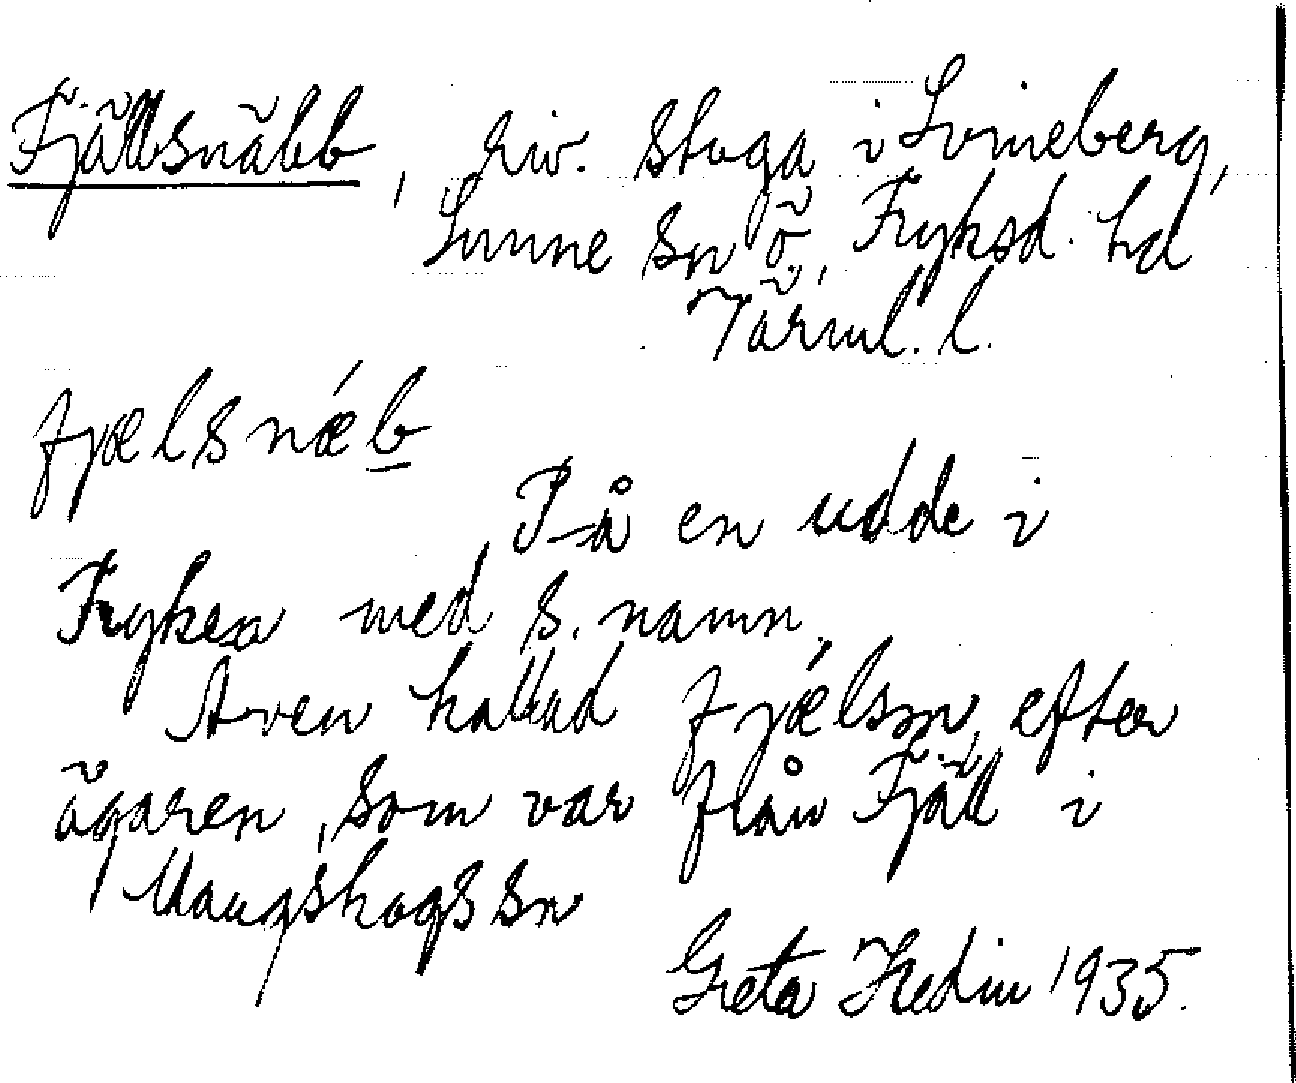 Fjällsnäbb, riv. stuga i Svineberg,
Sunne sn ö., Fryksd. hd
Värml. l.
fjælsnǽb
På en udde i
Fryken med s. namn.
Även kallad fjǽlsm, efter
ägaren, som var från Fjäll i
Mangskogs sn
Greta Hedin 1935.